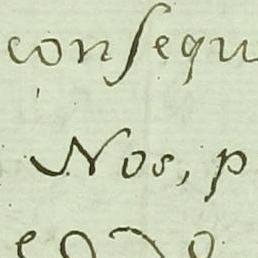 conſequ
Nos, p